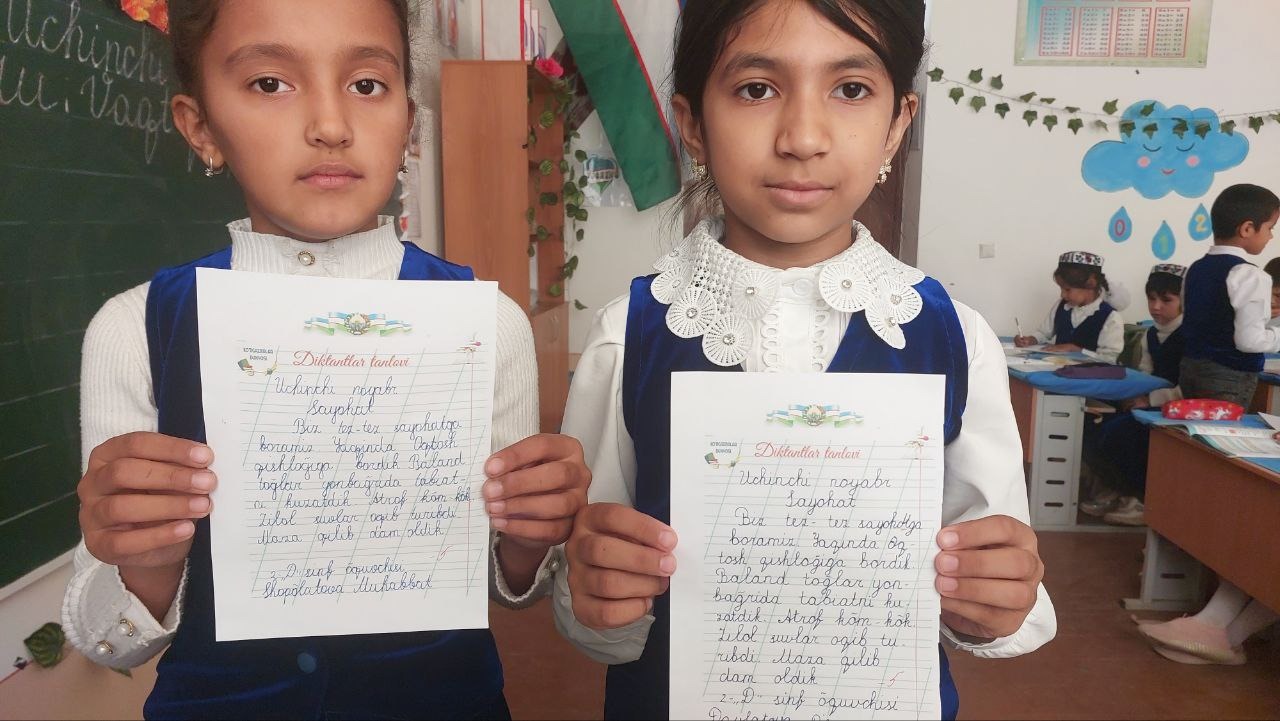 Uchinchi
Vaqt
Diktantlar tanlovi
Uchinchi noyabr
Sayohat
Biz tez-tez sayohatga
boramiz Yaqinda Oqtosh
qishlogiga bordik Baland
toglar yonbagrida tabiat-
ni kuzatdik Atrof kōm-kōk
Zilol suvlar oqib turibdi
Maza qilib dam oldik
5
2-„D" sinf ōquvchisi
Muhabbat
Diktantlar tanlovi
Uchinchi noyabr
Sayohat
Biz tez-tez sayohatga
boramiz Yaqinda Oq
tosh qishloğiga bordik
Baland toğlar yon-
bağrida tabiatni ku
zatdik. Atrof kōm-kōk.
Zilol suvlar oqib tu
ribdi. Maza qilib
dam oldik
5
2-„D" sinf ōquvchisi
0 1 2